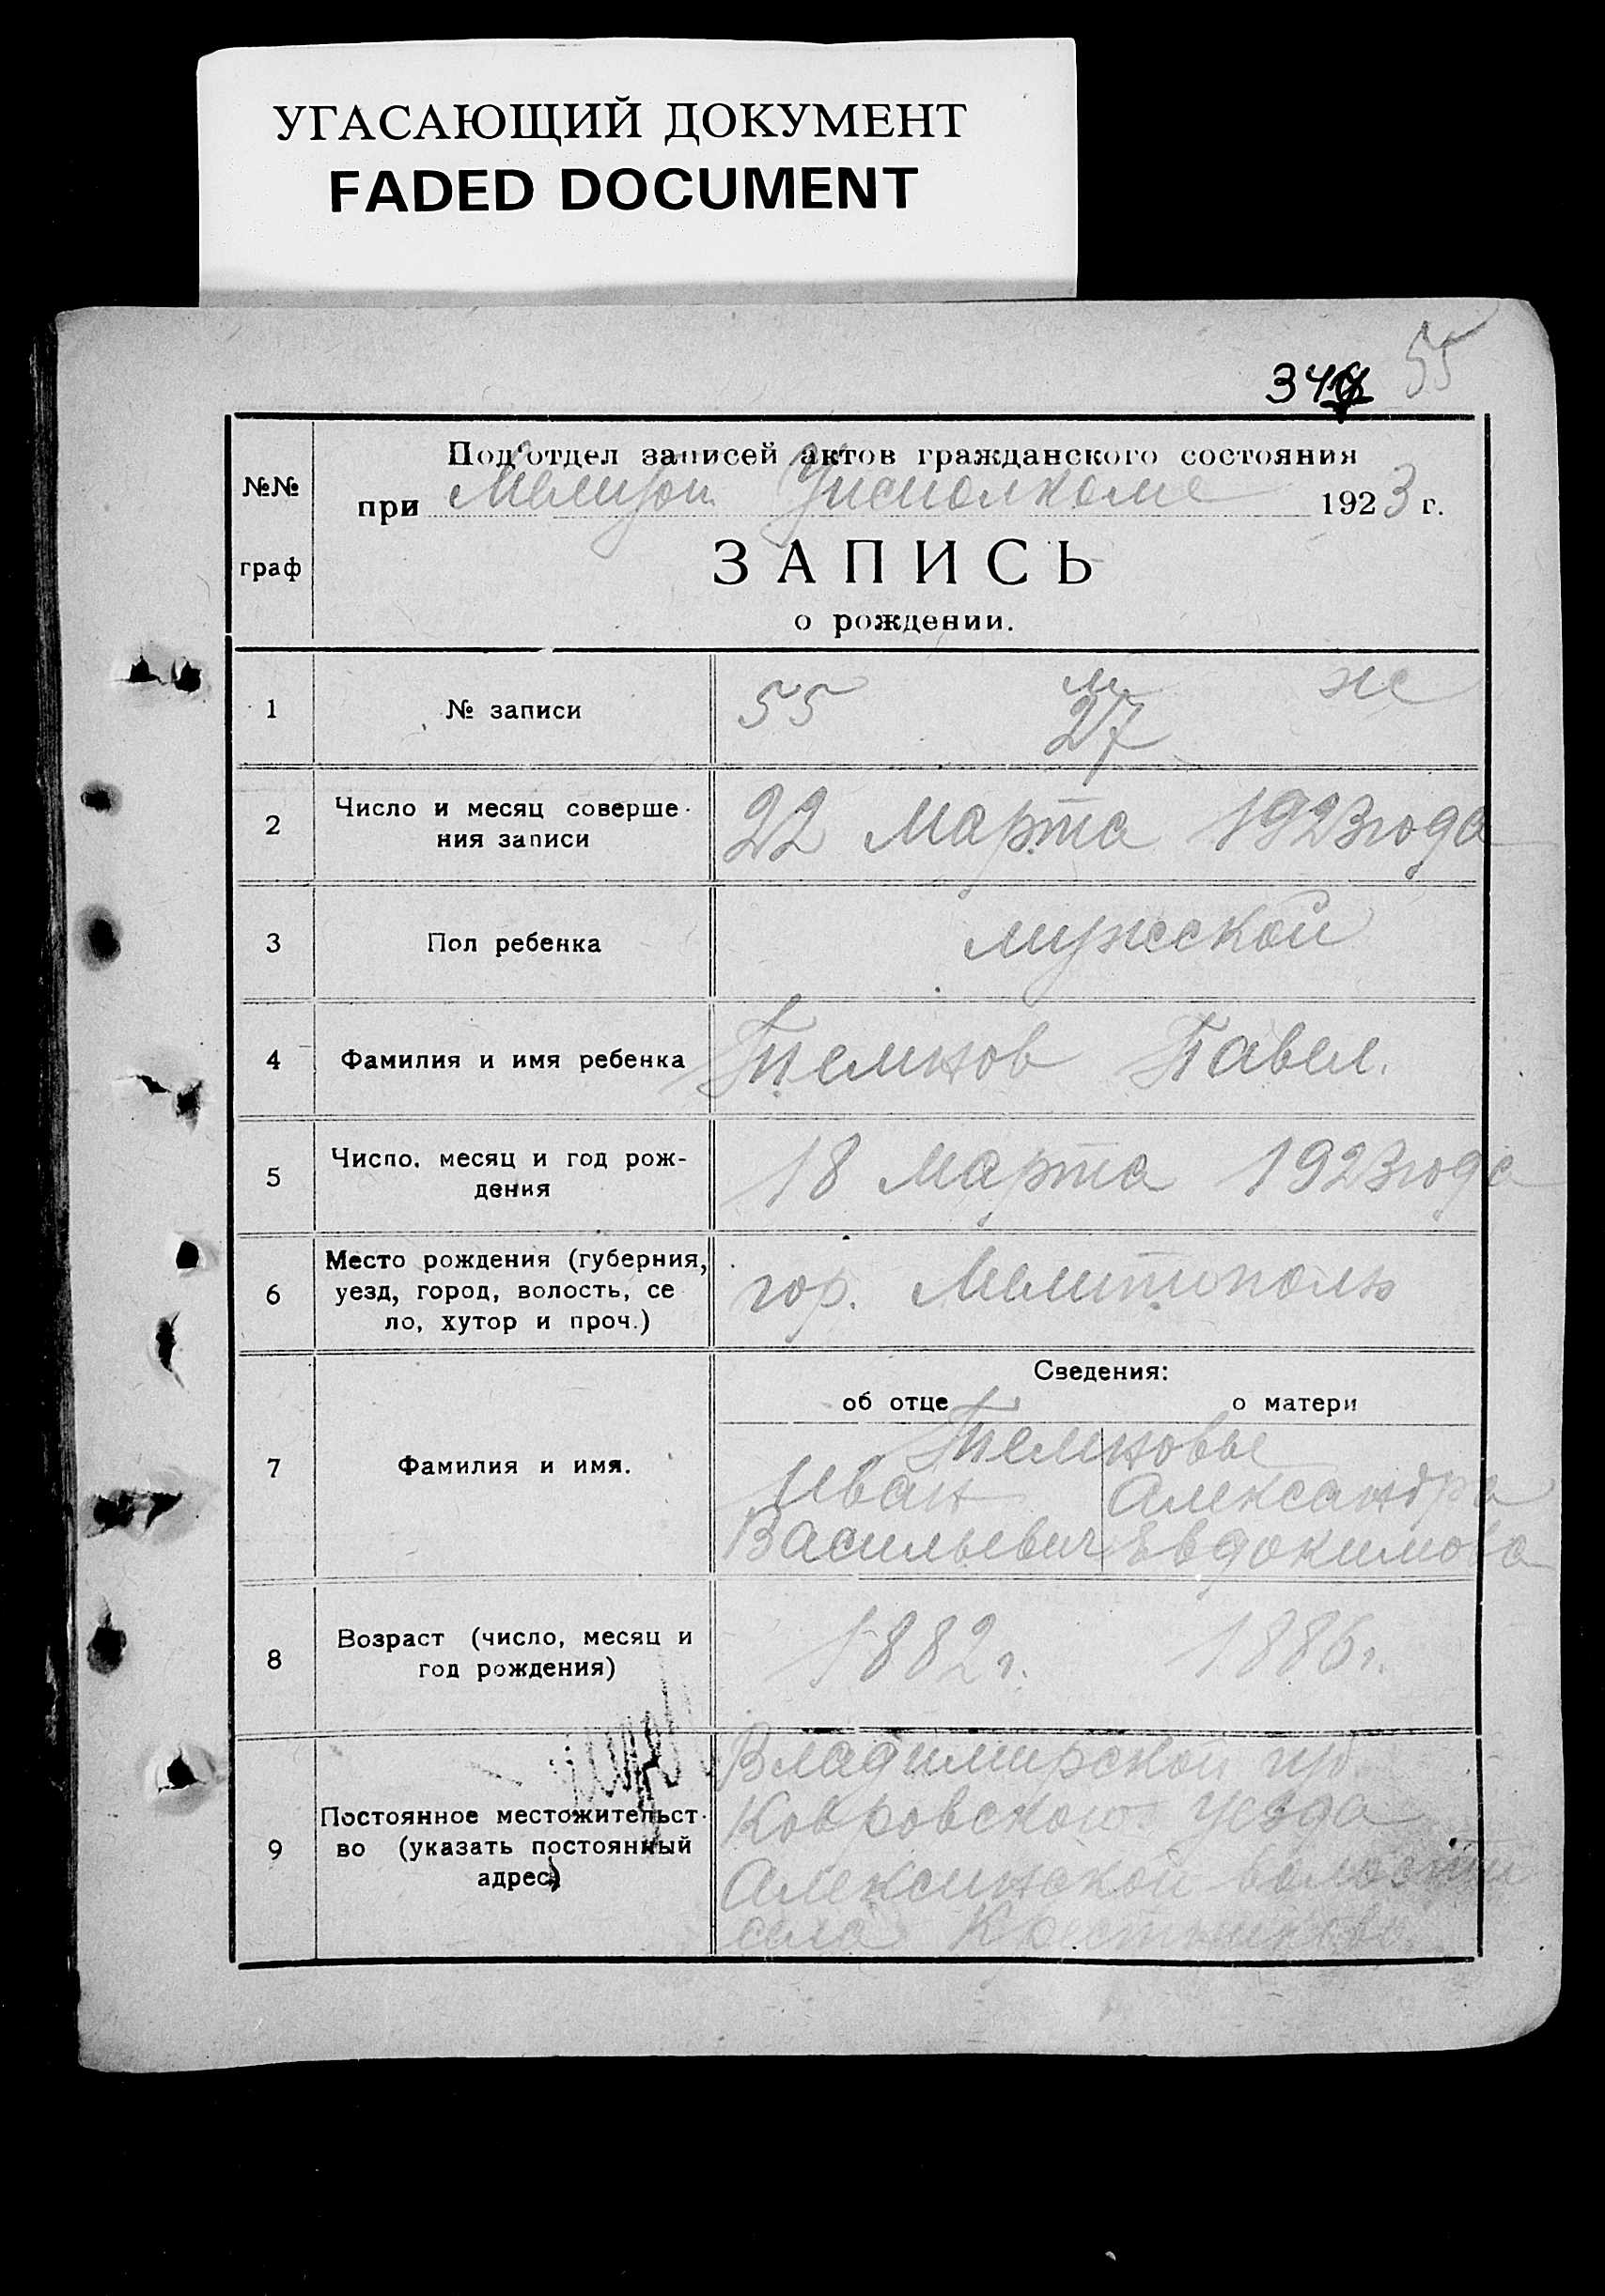 УГАСАЮЩИЙ ДОКУМЕНТ
FADED DOCUMENT
55
34
№№
граф
Подотдел записей актов гражданского состояния
при Уисполкоме 1923 г.
ЗАПИСЬ
о рождении.
1 № записи 55 м 27 ж
2 Число и месяц соверше-
ния записи 22 Марта 1923 года
3 Пол ребенка мужской
4 Фамилия и имя ребенка Темнов Павел.
5 Число, месяц и год рож-
дения 18 Марта 1923 года
6 Место рождения (губерния,
уезд, город, волость, се
ло, хутор и проч.) гор. Мелитополь
Сведения:
об отце о матери
7 Фамилия и имя. Темновы
Иван Александра
Васильевич Евдокимова
8 Возраст (число, месяц и
год рождения) 1882 г. 1886 г.
9 Постоянное местожительст-
во (указать постоянный
адрес)
Владимирской губ.
Ковровского уезда
Алексинской волости
села